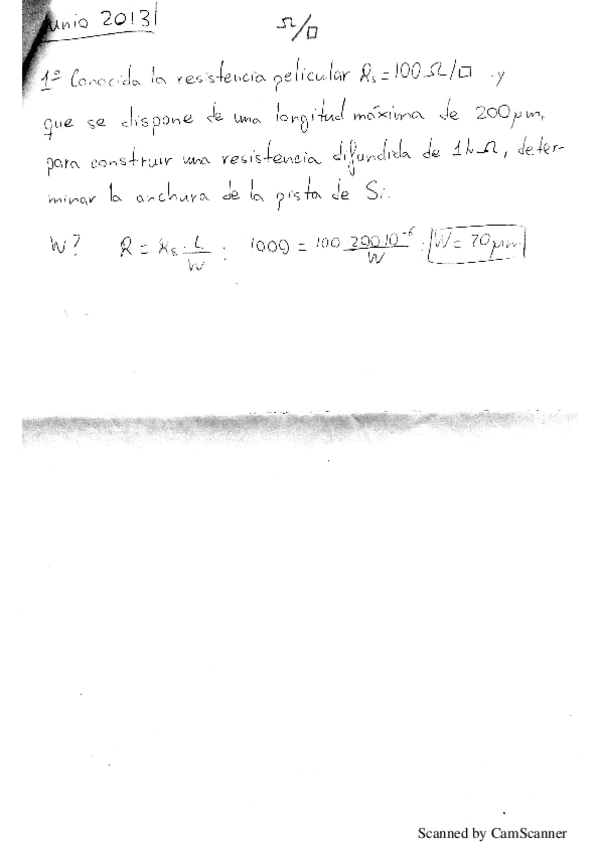 Junio 2013
Ω/□
1º Conocida la resistencia pelicular Rs=100Ω/□ y
que se dispone de una longitud máxima de 200μm,
para construir una resistencia difundida de 1kΩ, deter-
minar la anchura de la pista de Si.
W? R = Rs · L/W ; 1000 = 100 200·10⁻⁶/W : W = 20μm
Scanned by CamScanner